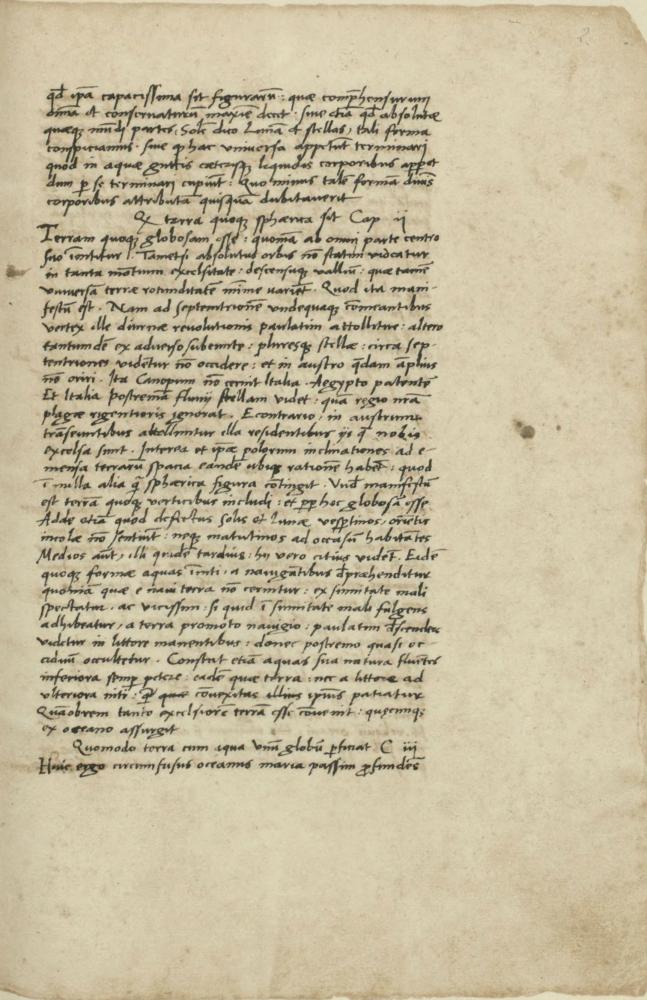 2
qd ipa capacissima sit figurarũ: quæ comphensurum
omia et conseruaturũ maxie decet: siue etiã qd absolutæ
quæqȝ mũdi partes: Solẽ dico Lunã et stellas, tali forma
conspiciamus. siue q hac vniuersa appetũt terminari
quod in aquæ guttis cæterisqȝ liquidis corporibus appet
dum p se terminari cupiũt: Quo minus talẽ formã diuis
corporibus attributã quisquã dubitauerit
Q terra quoqȝ sphærica sit Cap ii
Terram quoqȝ globosam esse: quoniã ab omni parte centro
suo innititur. Tametsi absolutus orbis nõ statim videatur
in tanta mõtium excelsitate: descensuqȝ valliũ: quæ tamẽ
vniuersã terræ rotunditatẽ mĩme variẽt. Quod ita mani-
festũ est. Nam ad septemtrionẽ vndequaqȝ cõmeantibus
vertex ille diurnæ reuolutionis paulatim attollitur: altero
tantumdẽ ex aduerso subeunte: pluresqȝ stellæ: circa sep-
tentriones vidẽtur nõ occidere: et in austro qdam amplius
nõ oriri. Ita Canopum nõ cernit Italia. Aegypto patentẽ
Et Italia postremã fluuij stellam videt: quã regio nrã
plagæ rigentioris ignorat. E contrario, in austrum
trãseuntibus attollũtur illa residentibus ijs q nobis
excelsa sunt. Interea et ipæ polorum inclinationes ad e-
mensa terrarũ spacia eandẽ ubiqȝ rationẽ habẽt: quod
ĩ nulla alia q sphærica figura cõtingit. Vñd manifestũ
est terrã quoqȝ verticibus includi: et pp hoc globosã esse
Adde etiã quod defectus Solis et Lunæ vesptinos, orietis
incolæ nõ sentiũt: neqȝ matutinos ad occasũ habitãtes
Medios aũt, illi qridẽ tardius: hij vero citius vidẽt. Eidẽ
quoqȝ formæ aquas ĩniti, a nauigãtibus dpræhenditur
quoniã quæ e naui terra nõ cernitur: ex sũmitate mali
spectatur. ac vicissim: si quid ĩ sũmitate mali fulgens
adhibeatur, a terra promoto nauigio: paulatim dscendere
videtur in littore manentibus: donec postremo quasi oc-
ciduũ occultetur. Constat etiã aquas sua natura fluẽtes
inferiora semp petere: eadẽ quæ terra: nec a littore ad
vlteriora niti: q quæ cõuexitas illius ipsius patiatur
Quãobrem tanto excelsiorẽ terrã esse cõuenit: quæcũqȝ
ex oceano assurgit
Quomodo terra cum aqua vnũ globũ pficiat C iii
Huic ergo circumfusus oceanus maria passim pfundẽs